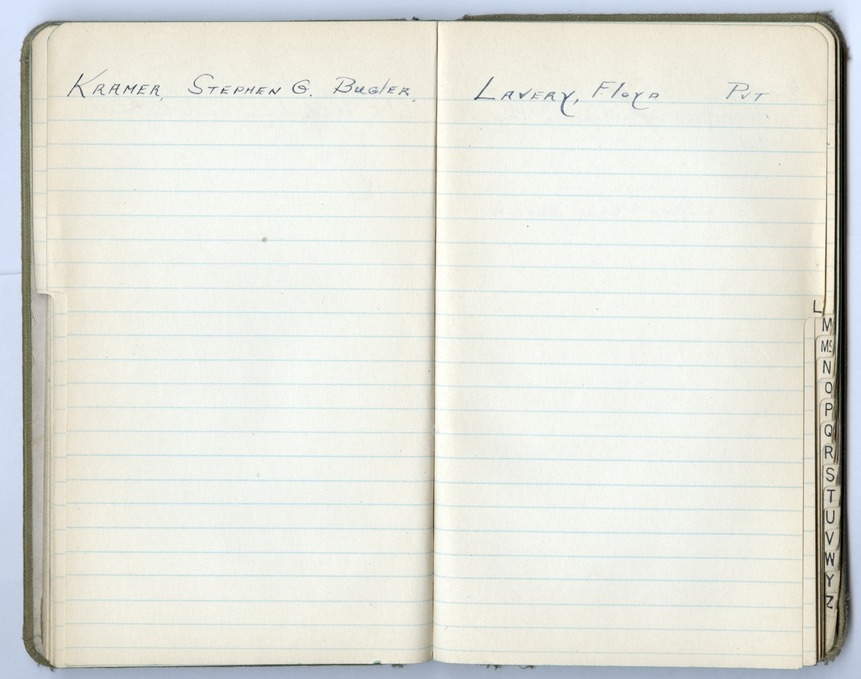 KRAMER, STEPHEN G. BUGLER.
LAVERY, FLOYD PVT
L
M
Mc
N
O
P
Q
R
S
T
U
V
W
Y
Z